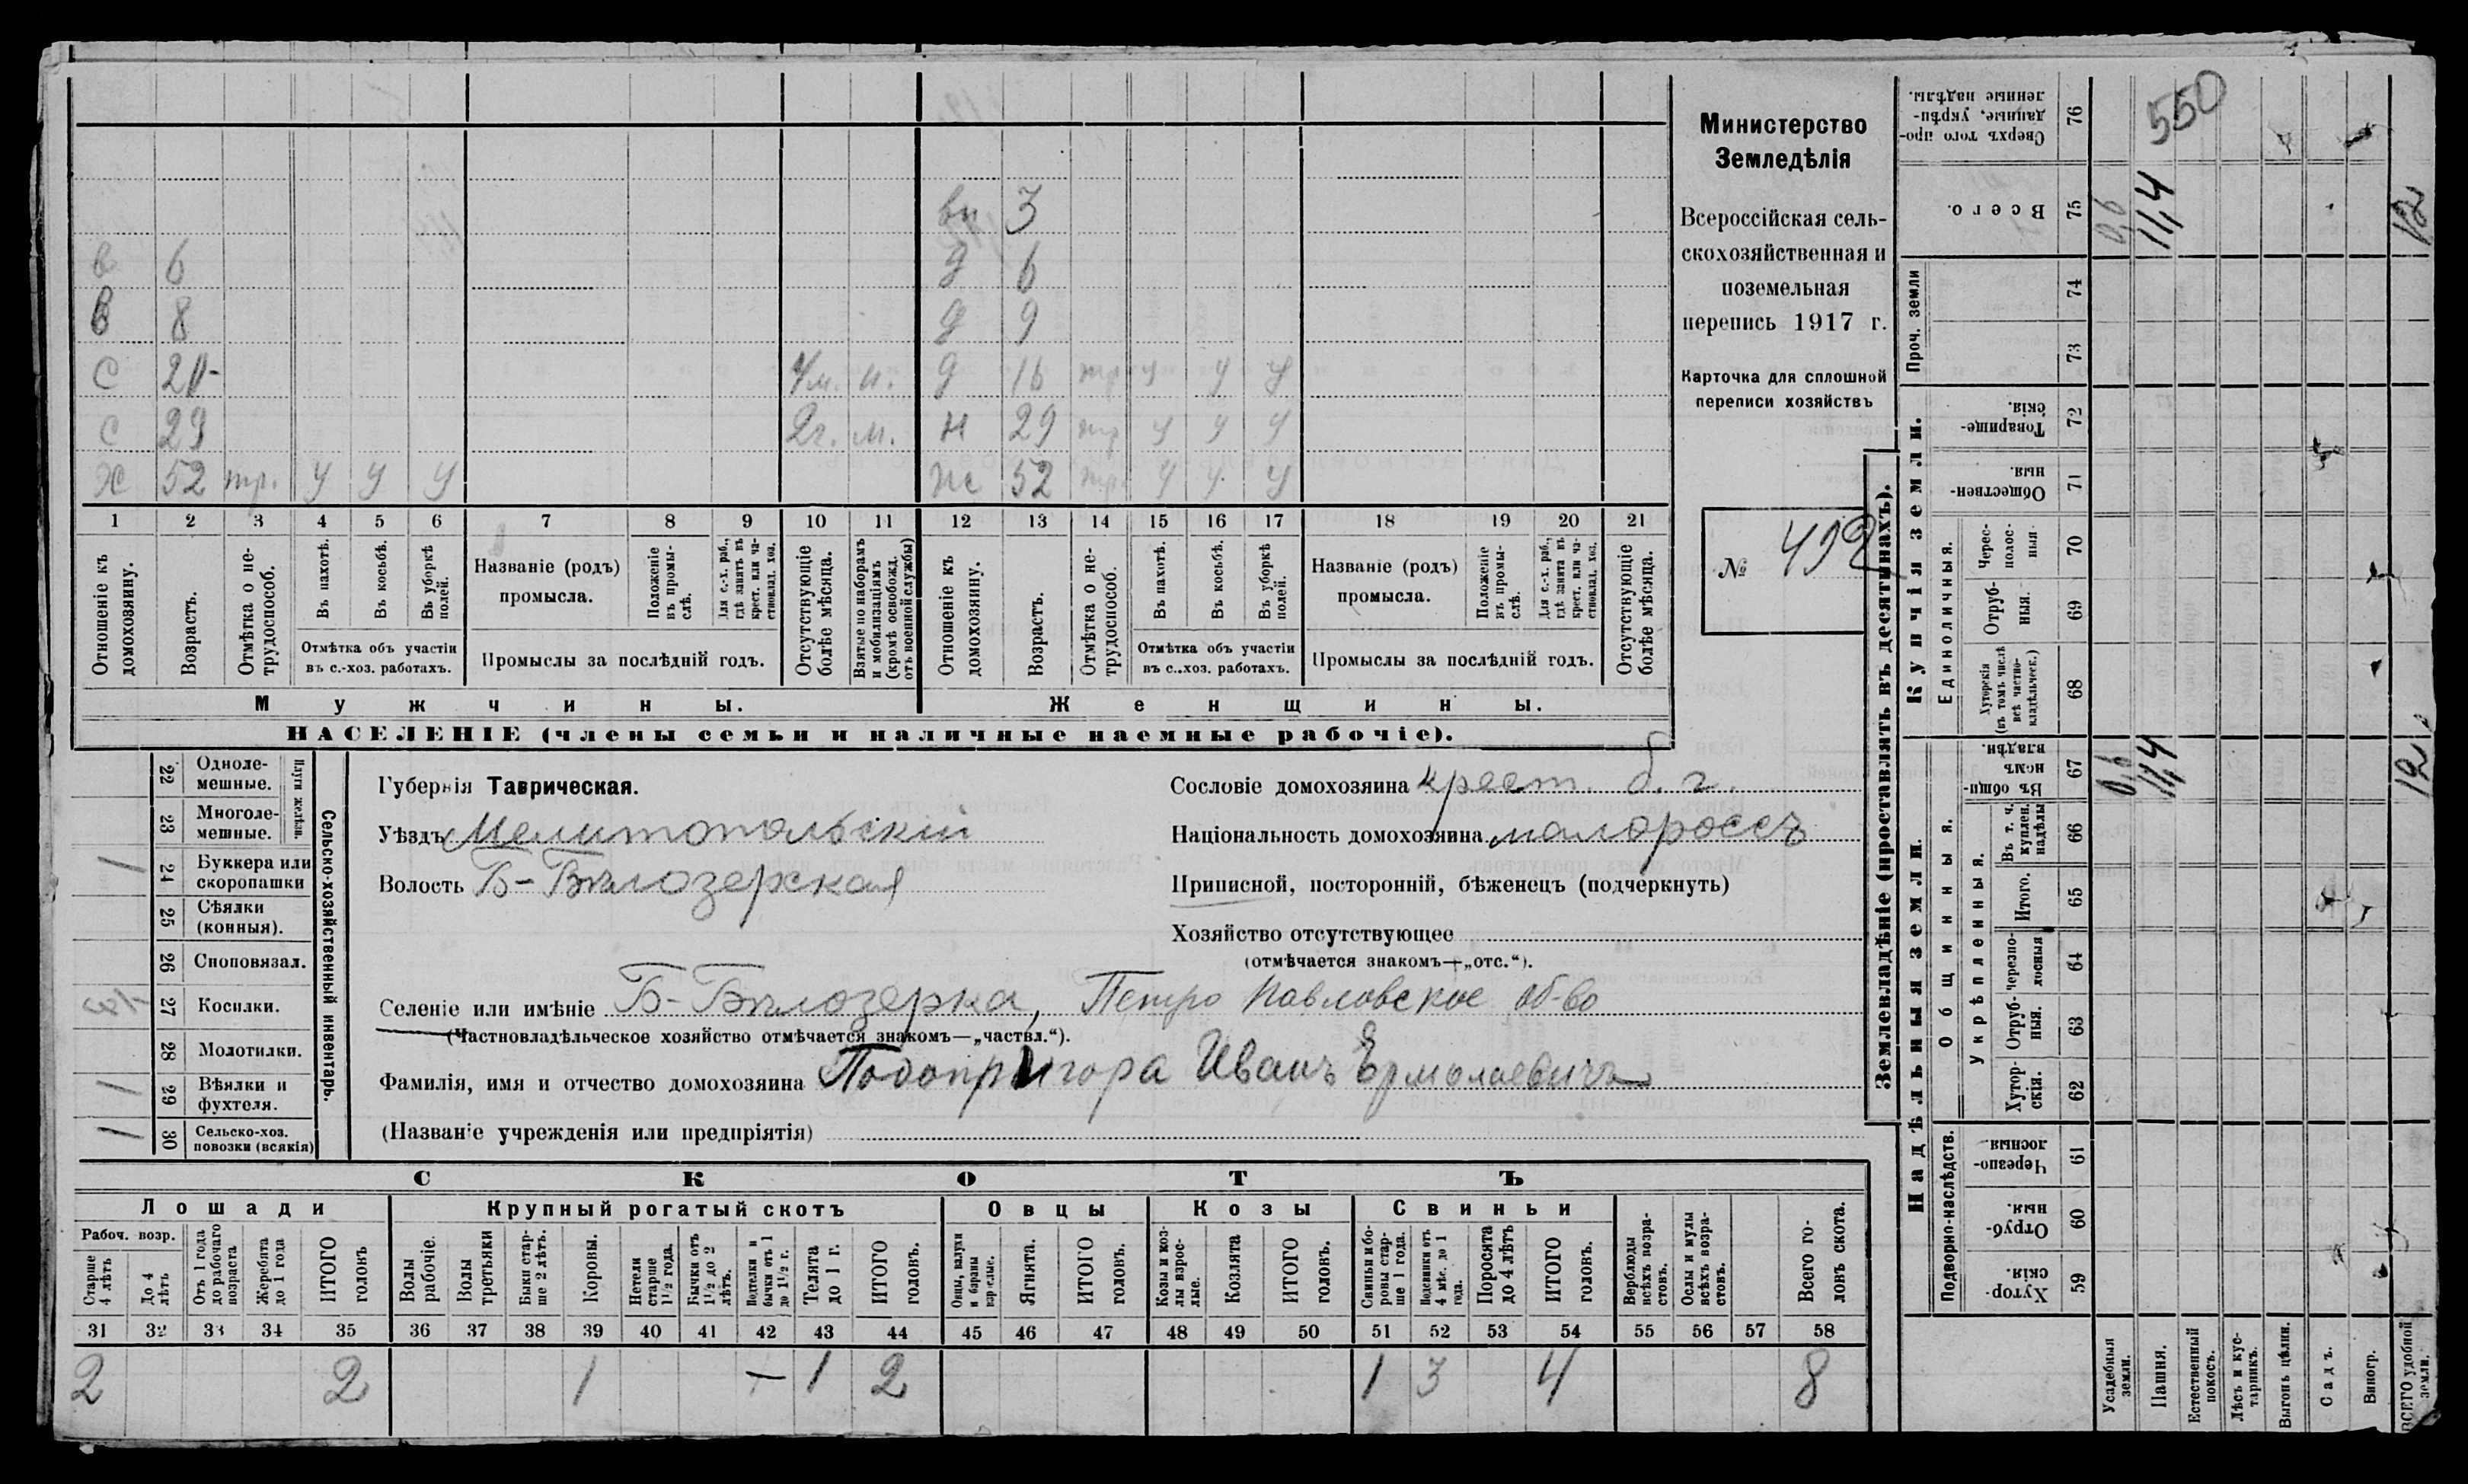 Министерство
Земледѣлія
Всероссійская сель-
скохозяйственная и
поземельная
перепись 1917 г.
Карточка для сплошной
переписи хозяйствъ
№ 492
вн 3
в 6 д 6
в 8 д 9
с 20 4м. н. д 16 тр у у у
с 29 2г. м. н 29 тр у у у
х 52 тр. у у у ж 52 тр. у у у
1 2 3 4 5 6 7 8 9 10 11 12 13 14 15 16 17 18 19 20 21
Отношеніе къ домохозяину.
Возрастъ.
Отмѣтка о не-трудоспособ.
Въ пахотѣ.
Въ косьбѣ.
Въ уборкѣ полей.
Отмѣтка объ участіи
въ с.-хоз. работахъ.
Названіе (родъ)
промысла.
Положеніе въ промы-слѣ.
Для с.-х. раб., гдѣ занятъ въ крест. или ча-стновлад. хоз.
Промыслы за послѣдній годъ.
Отсутствующіе болѣе мѣсяца.
Взятые по наборамъ и мобилизаціямъ (кромѣ освобожд. отъ военной службы)
Отношеніе къ домохозяину.
Возрастъ.
Отмѣтка о не-трудоспособ.
Въ пахотѣ.
Въ косьбѣ.
Въ уборкѣ полей.
Отмѣтка объ участіи
въ с..хоз. работахъ.
Названіе (родъ)
промысла.
Положеніе въ промы-слѣ.
Для с.-х. раб., гдѣ занята въ крест. или ча-стновлад. хоз.
Промыслы за послѣдній годъ.
Отсутствующіе болѣе мѣсяца.
Мужчины. Женщины.
НАСЕЛЕНІЕ (члены семьи и наличные наемные рабочіе).
22 Одноле-мешные.
23 Многоле-мешные.
Плуги желѣзн.
1 24 Буккера или скоропашки
25 Сѣялки (конныя).
26 Сноповязал.
27 Косилки.
28 Молотилки.
1 29 Вѣялки и фухтеля.
1 30 Сельско-хоз. повозки (всякія)
Сельско-хозяйственный инвентарь.
Губернія Таврическая.
Уѣздъ Мелитопольскій
Волость Б-Бѣлозерская
Сословіе домохозяина крест. б. г.
Національность домохозяина малороссъ
Приписной, посторонній, бѣженецъ (подчеркнуть)
Хозяйство отсутствующее
(отмѣчается знакомъ—„отс.“).
Селеніе или имѣніе Б-Бѣлозерка, Петро Павловское об-во
(Частновладѣльческое хозяйство отмѣчается знакомъ—„частвл.“).
Фамилія, имя и отчество домохозяина Подопригора Иванъ Ермолаевичъ
(Названіе учрежденія или предпріятія)
СКОТЪ
Лошади Крупный рогатый скотъ Овцы Козы Свиньи
Рабоч. возр.
Старше 4 лѣтъ
До 4 лѣтъ
Отъ 1 года до рабочаго возраста
Жеребята до 1 года
ИТОГО головъ
Волы рабочіе.
Волы третьяки
Быки стар-ше 2 лѣтъ.
Коровы.
Нетели старше 1½ года.
Бычки отъ 1½ до 2 лѣтъ.
Подтелки и бычки отъ 1 до 1½ г.
Телята до 1 г.
ИТОГО головъ.
Овцы, валухи и бараны взрослые.
Ягнята.
ИТОГО головъ.
Козы и коз-лы взрос-лые.
Козлята
ИТОГО головъ.
Свиньи и бо-ровы стар-ше 1 года.
Подсвинки отъ 4 мѣс. до 1 года.
Поросята до 4 лѣтъ
ИТОГО головъ.
Верблюды всѣхъ возра-стовъ.
Ослы и мулы всѣхъ возра-стовъ.
Всего го-ловъ скота.
31 32 33 34 35 36 37 38 39 40 41 42 43 44 45 46 47 48 49 50 51 52 53 54 55 56 57 58
2 2 1 1 2 1 3 4 8
Землевладѣніе (проставлять въ десятинахъ).
Надѣльныя земли.
Купчія земли.
Проч. земли
Подворно-наслѣдств.
Общинныя.
Укрѣпленныя.
Единоличныя.
Хутор-скія. 59
Отруб-ныя. 60
Черезпо-лосныя. 61
Хутор-скія. 62
Отруб-ныя. 63
Черезпо-лосныя 64
Итого. 65
Въ т. ч. куплен. надѣлы 66
Въ общин-номъ владѣн. 67 0,6 11,4 12
Хуторскія (въ томъ числѣ всѣ частно-владѣльческ.) 68
Отруб-ныя. 69
Черес-полос-ныя 70
Обществен-ныя. 71
Товарище-скія. 72
73
74
Всего. 75 0,6 11,4 12
Сверхъ того про-данные, укрѣп-ленные надѣлы. 76 550
Усадебныя земли.
Пашня.
Естественный покосъ.
Лѣсъ и кус-тарникъ.
Выгонъ цѣлин.
Садъ.
Виногр.
ВСЕГО удобной земли.